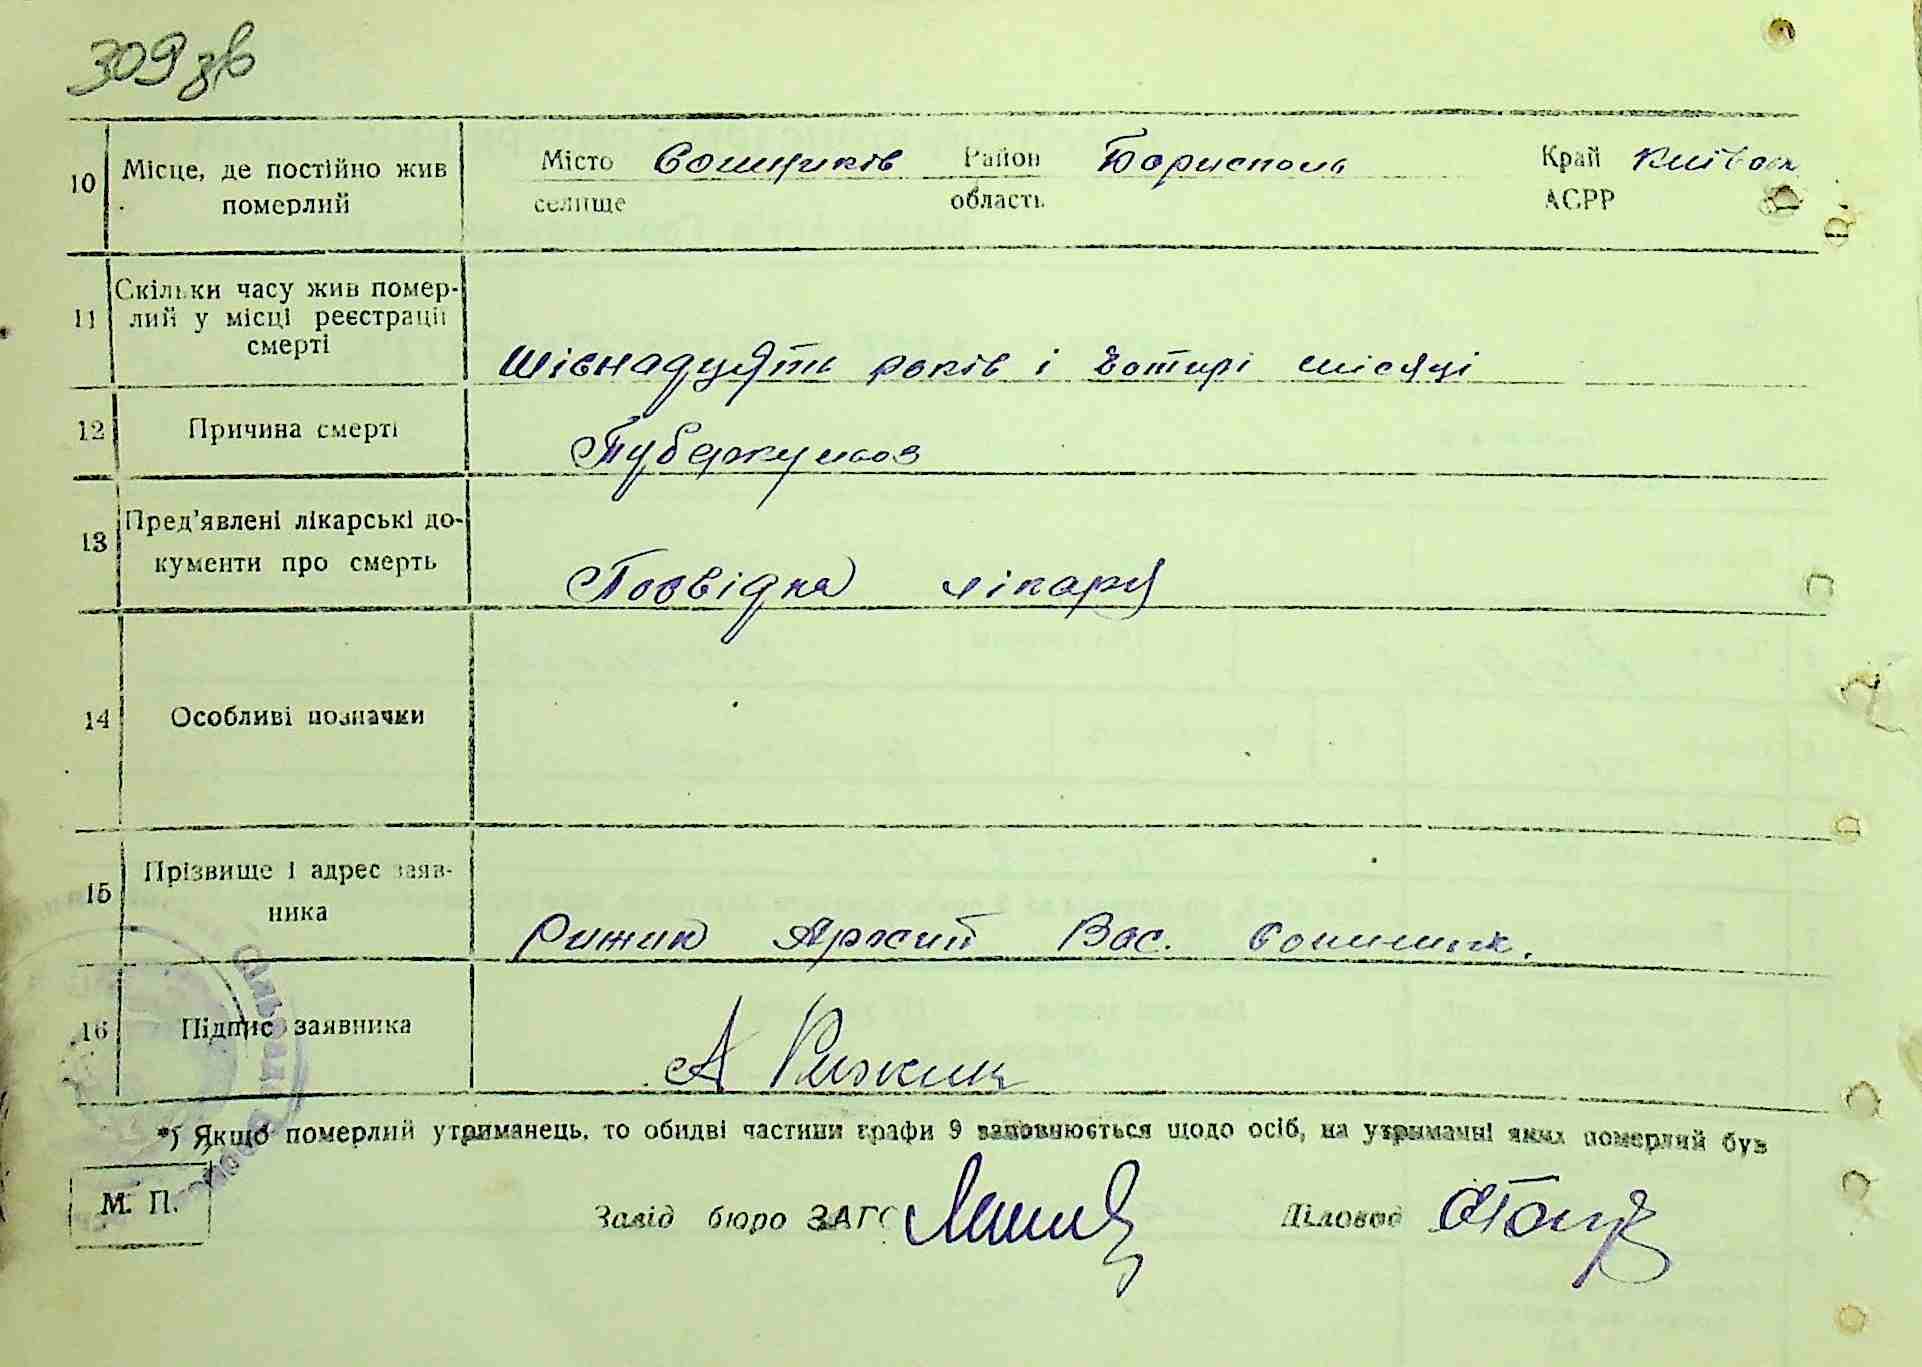 309 зв
10 Місце, де постійно жив померлий Місто селище Сошників Район область Бориспол Край АСРР Київськ
11 Скільки часу жив помер-
лий у місці реєстрації
смерті
Шіснадцять років і чотирі місяці
12 Причина смерті
Туберкульоз
13 Пред'явлені лікарські до-
кументи про смерть
Посвідка лікаря
14 Особливі позначки
15 Прізвище і адрес заяв-
ника
Рижик Вас.
16 Підпис заявника
А Рижик
*) Якщо померлий утриманець, то обидві частини графи 9 заповнюється щодо осіб, на утриманні яких померлий був
М. П.
Завід бюро ЗАГС Діловод